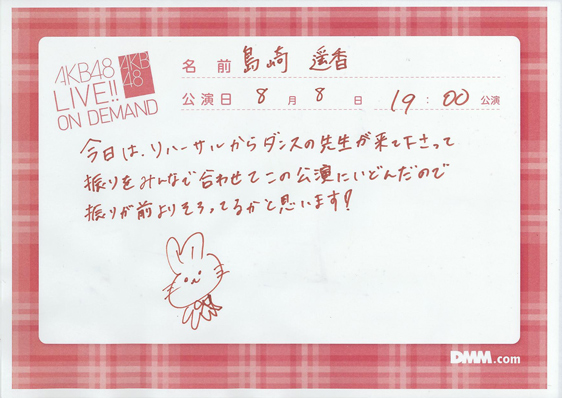 AKB48
LIVE!!
ON DEMAND
AKB
48
名 前 島崎 遥香
公演日 8 月 8 日 19:00 公演
今日は、リハーサルからダンスの先生が来て下さって
振りをみんなで合わせてこの公演にいどんだので
振りが前よりそろってるかと思います!
DMM.com